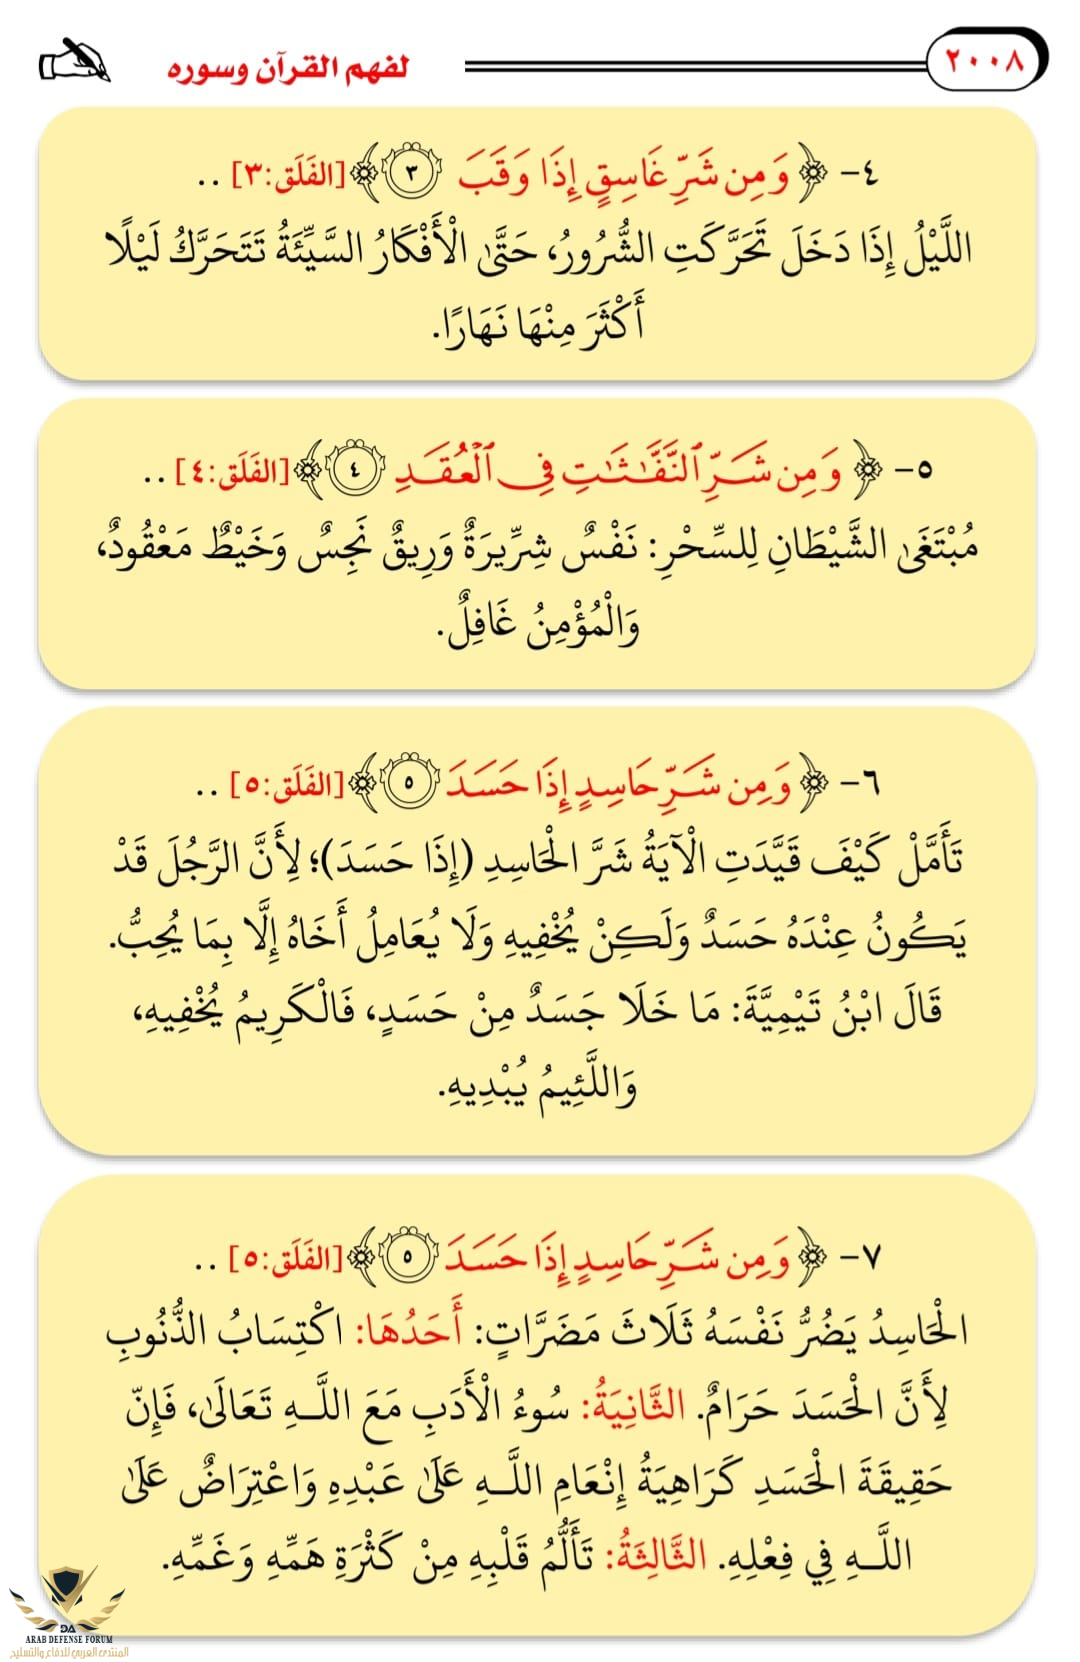 ٢٠٠٨
لفهم القرآن وسوره
٤- ﴿وَمِن شَرِّ غَاسِقٍ إِذَا وَقَبَ ٣﴾ [الفَلَق:٣] ..
اللَّيْلُ إِذَا دَخَلَ تَحَرَّكَتِ الشُّرُورُ، حَتَّىٰ الْأَفْكَارُ السَّيِّئَةُ تَتَحَرَّكُ لَيْلًا
أَكْثَرَ مِنْهَا نَهَارًا.
٥- ﴿وَمِن شَرِّ ٱلنَّفَّٰثَٰتِ فِى ٱلْعُقَدِ ٤﴾ [الفَلَق:٤] ..
مُبْتَغَىٰ الشَّيْطَانِ لِلسِّحْرِ: نَفْسٌ شِرِّيرَةٌ وَرِيقٌ نَجِسٌ وَخَيْطٌ مَعْقُودٌ،
وَالْمُؤْمِنُ غَافِلٌ.
٦- ﴿وَمِن شَرِّ حَاسِدٍ إِذَا حَسَدَ ٥﴾ [الفَلَق:٥] ..
تَأَمَّلْ كَيْفَ قَيَّدَتِ الْآيَةُ شَرَّ الْحَاسِدِ (إِذَا حَسَدَ)؛ لِأَنَّ الرَّجُلَ قَدْ
يَكُونُ عِنْدَهُ حَسَدٌ وَلَكِنْ يُخْفِيهِ وَلَا يُعَامِلُ أَخَاهُ إِلَّا بِمَا يُحِبُّ.
قَالَ ابْنُ تَيْمِيَّةَ: مَا خَلَا جَسَدٌ مِنْ حَسَدٍ، فَالْكَرِيمُ يُخْفِيهِ،
وَاللَّئِيمُ يُبْدِيهِ.
٧- ﴿وَمِن شَرِّ حَاسِدٍ إِذَا حَسَدَ ٥﴾ [الفَلَق:٥] ..
الْحَاسِدُ يَضُرُّ نَفْسَهُ ثَلَاثَ مَضَرَّاتٍ: أَحَدُهَا: اكْتِسَابُ الذُّنُوبِ
لِأَنَّ الْحَسَدَ حَرَامٌ. الثَّانِيَةُ: سُوءُ الْأَدَبِ مَعَ اللَّـهِ تَعَالَىٰ، فَإِنّ
حَقِيقَةَ الْحَسَدِ كَرَاهِيَةُ إِنْعَامِ اللَّـهِ عَلَىٰ عَبْدِهِ وَاعْتِرَاضٌ عَلَىٰ
اللَّـهِ فِي فِعْلِهِ. الثَّالِثَةُ: تَأَلُّمُ قَلْبِهِ مِنْ كَثْرَةِ هَمِّهِ وَغَمِّهِ.
DA
ARAB DEFENSE FORUM
المنتدى العربي للدفاع والتسليح